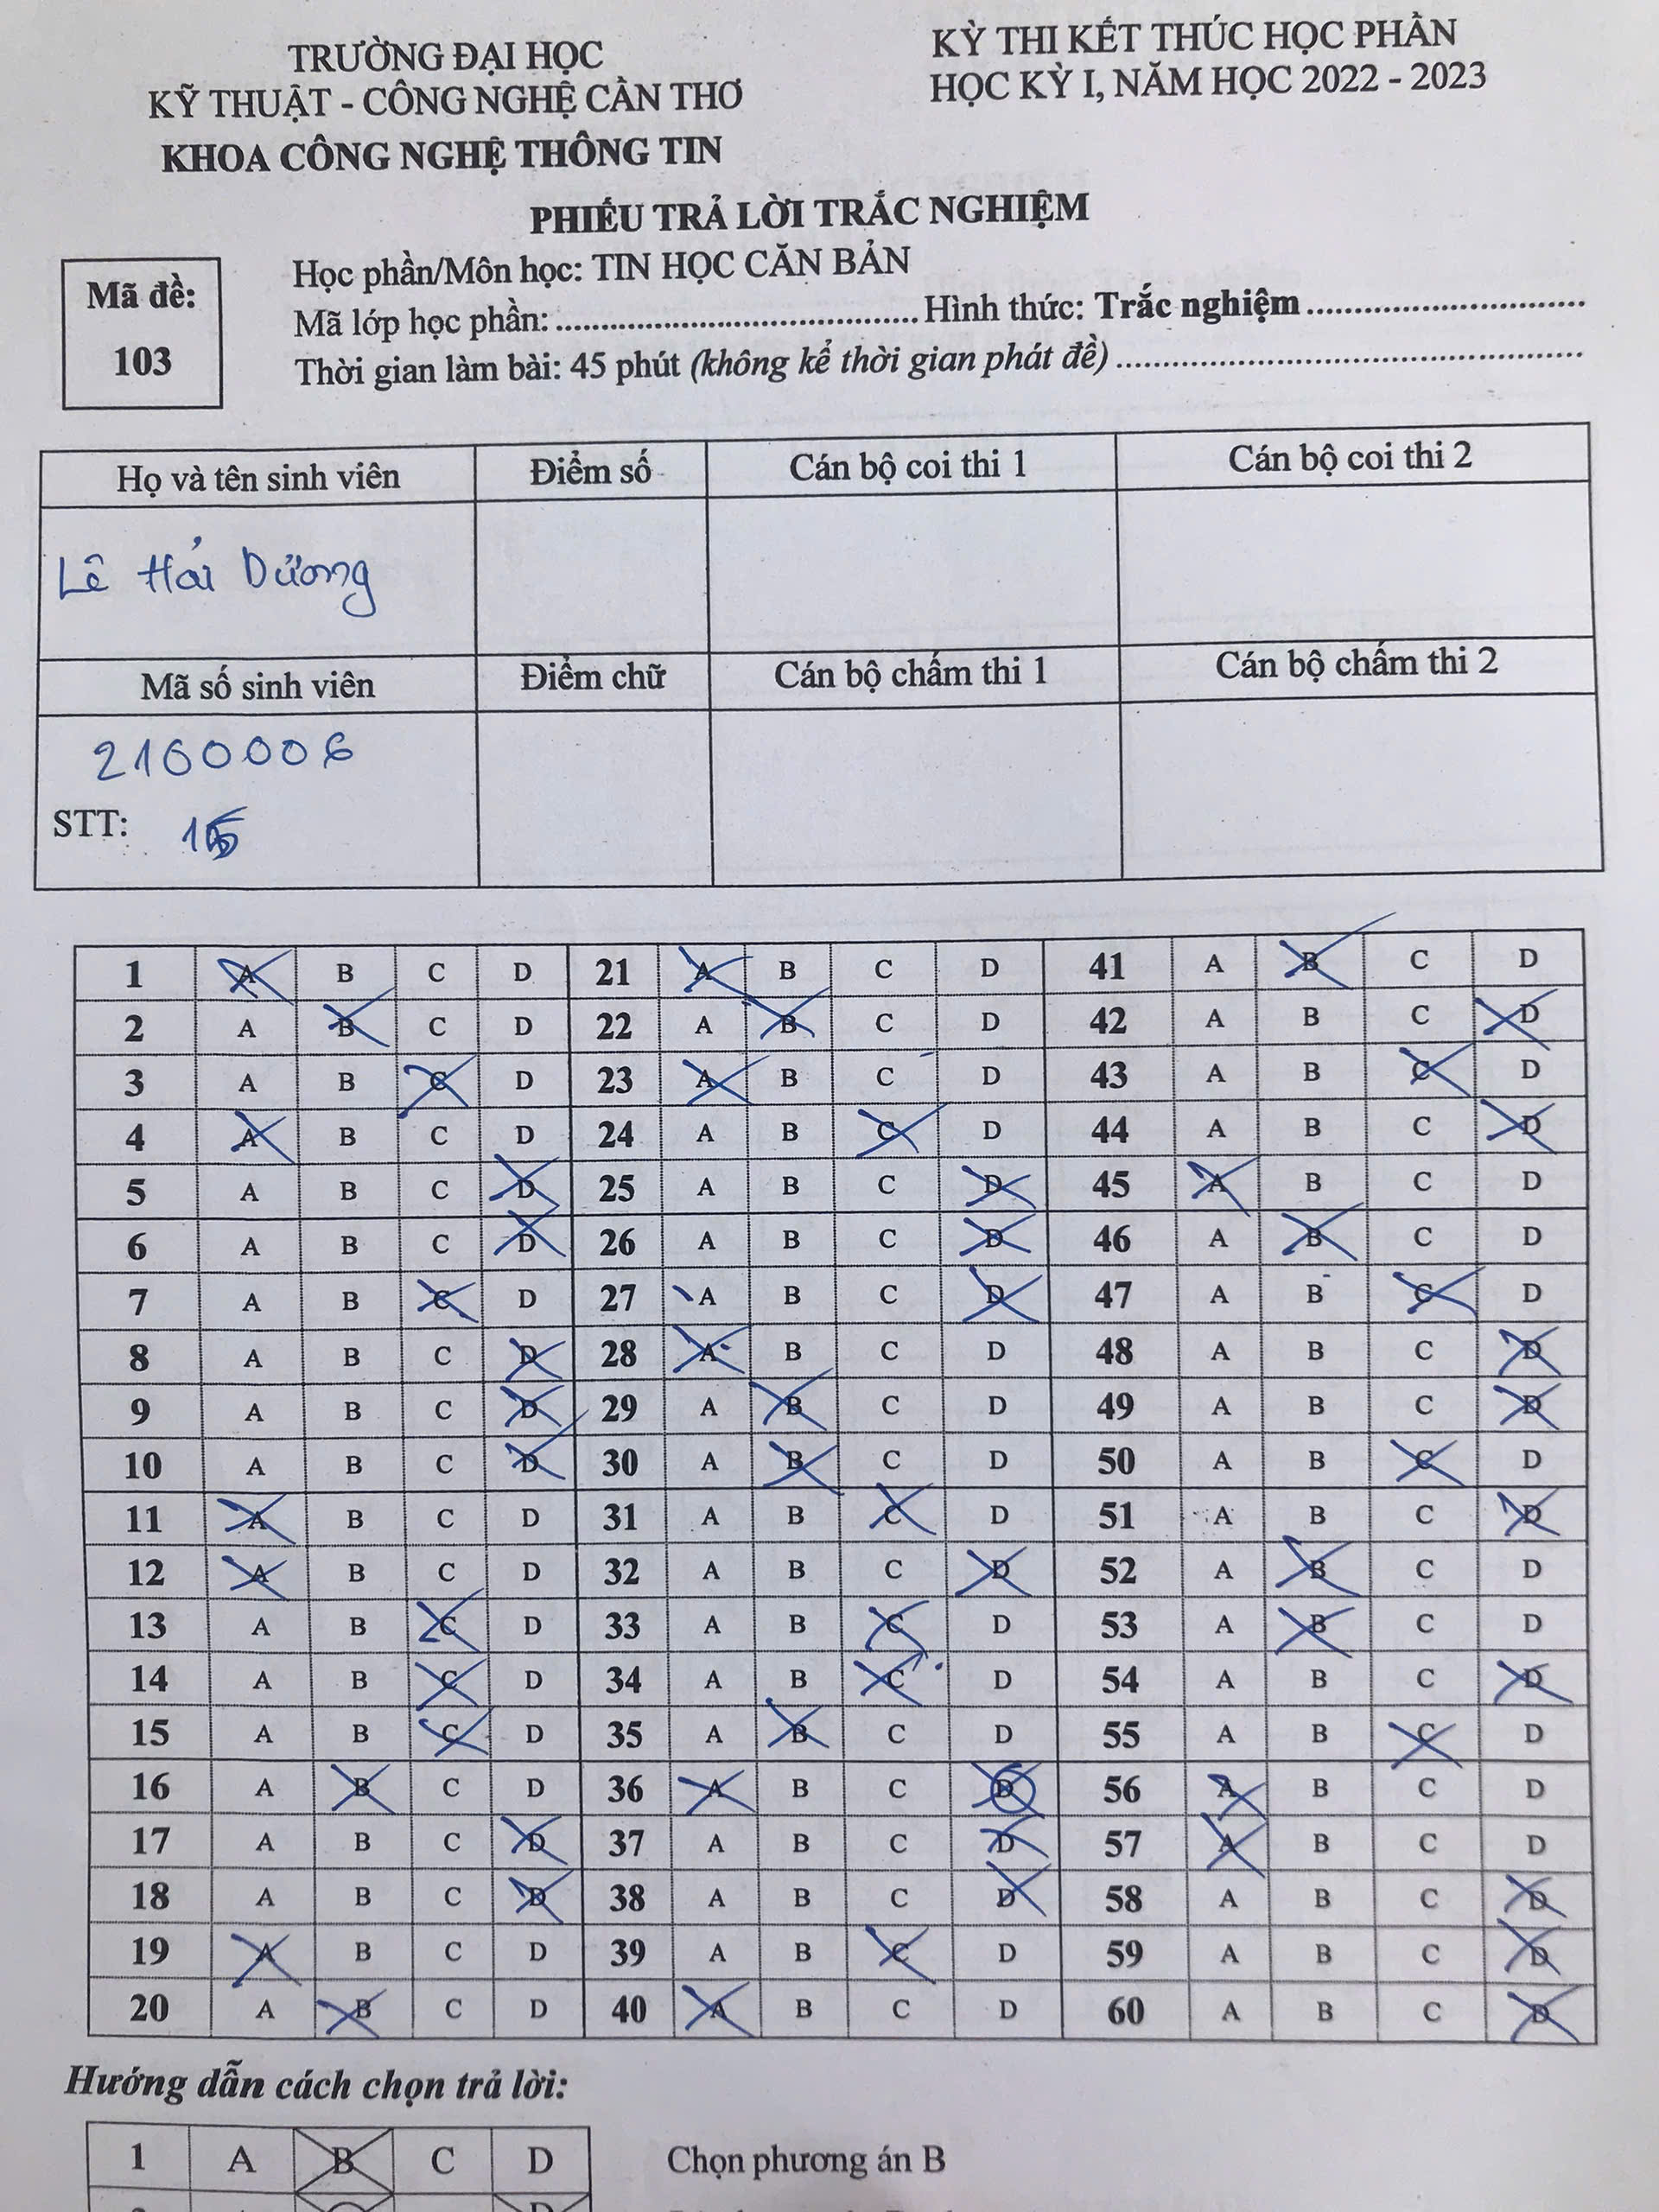 TRƯỜNG ĐẠI HỌC
KỸ THUẬT - CÔNG NGHỆ CẦN THƠ
KHOA CÔNG NGHỆ THÔNG TIN
KỲ THI KẾT THÚC HỌC PHẦN
HỌC KỲ I, NĂM HỌC 2022 - 2023
PHIẾU TRẢ LỜI TRẮC NGHIỆM
Mã đề:
103
Học phần/Môn học: TIN HỌC CĂN BẢN
Mã lớp học phần: Hình thức: Trắc nghiệm
Thời gian làm bài: 45 phút (không kể thời gian phát đề)
Họ và tên sinh viên Điểm số Cán bộ coi thi 1 Cán bộ coi thi 2
Lê Hải Dương
Mã số sinh viên Điểm chữ Cán bộ chấm thi 1 Cán bộ chấm thi 2
2100006
STT:
1 A B C D 21 A B C D 41 A B C D
2 A B C D 22 A B C D 42 A B C D
3 A B C D 23 A B C D 43 A B C D
4 A B C D 24 A B C D 44 A B C D
5 A B C D 25 A B C D 45 A B C D
6 A B C D 26 A B C D 46 A B C D
7 A B C D 27 A B C D 47 A B C D
8 A B C D 28 A B C D 48 A B C D
9 A B C D 29 A B C D 49 A B C D
10 A B C D 30 A B C D 50 A B C D
11 A B C D 31 A B C D 51 A B C D
12 A B C D 32 A B C D 52 A B C D
13 A B C D 33 A B C D 53 A B C D
14 A B C D 34 A B C D 54 A B C D
15 A B C D 35 A B C D 55 A B C D
16 A B C D 36 A B C D 56 A B C D
17 A B C D 37 A B C D 57 A B C D
18 A B C D 38 A B C D 58 A B C D
19 A B C D 39 A B C D 59 A B C D
20 A B C D 40 A B C D 60 A B C D
Hướng dẫn cách chọn trả lời:
1 A B C D Chọn phương án B